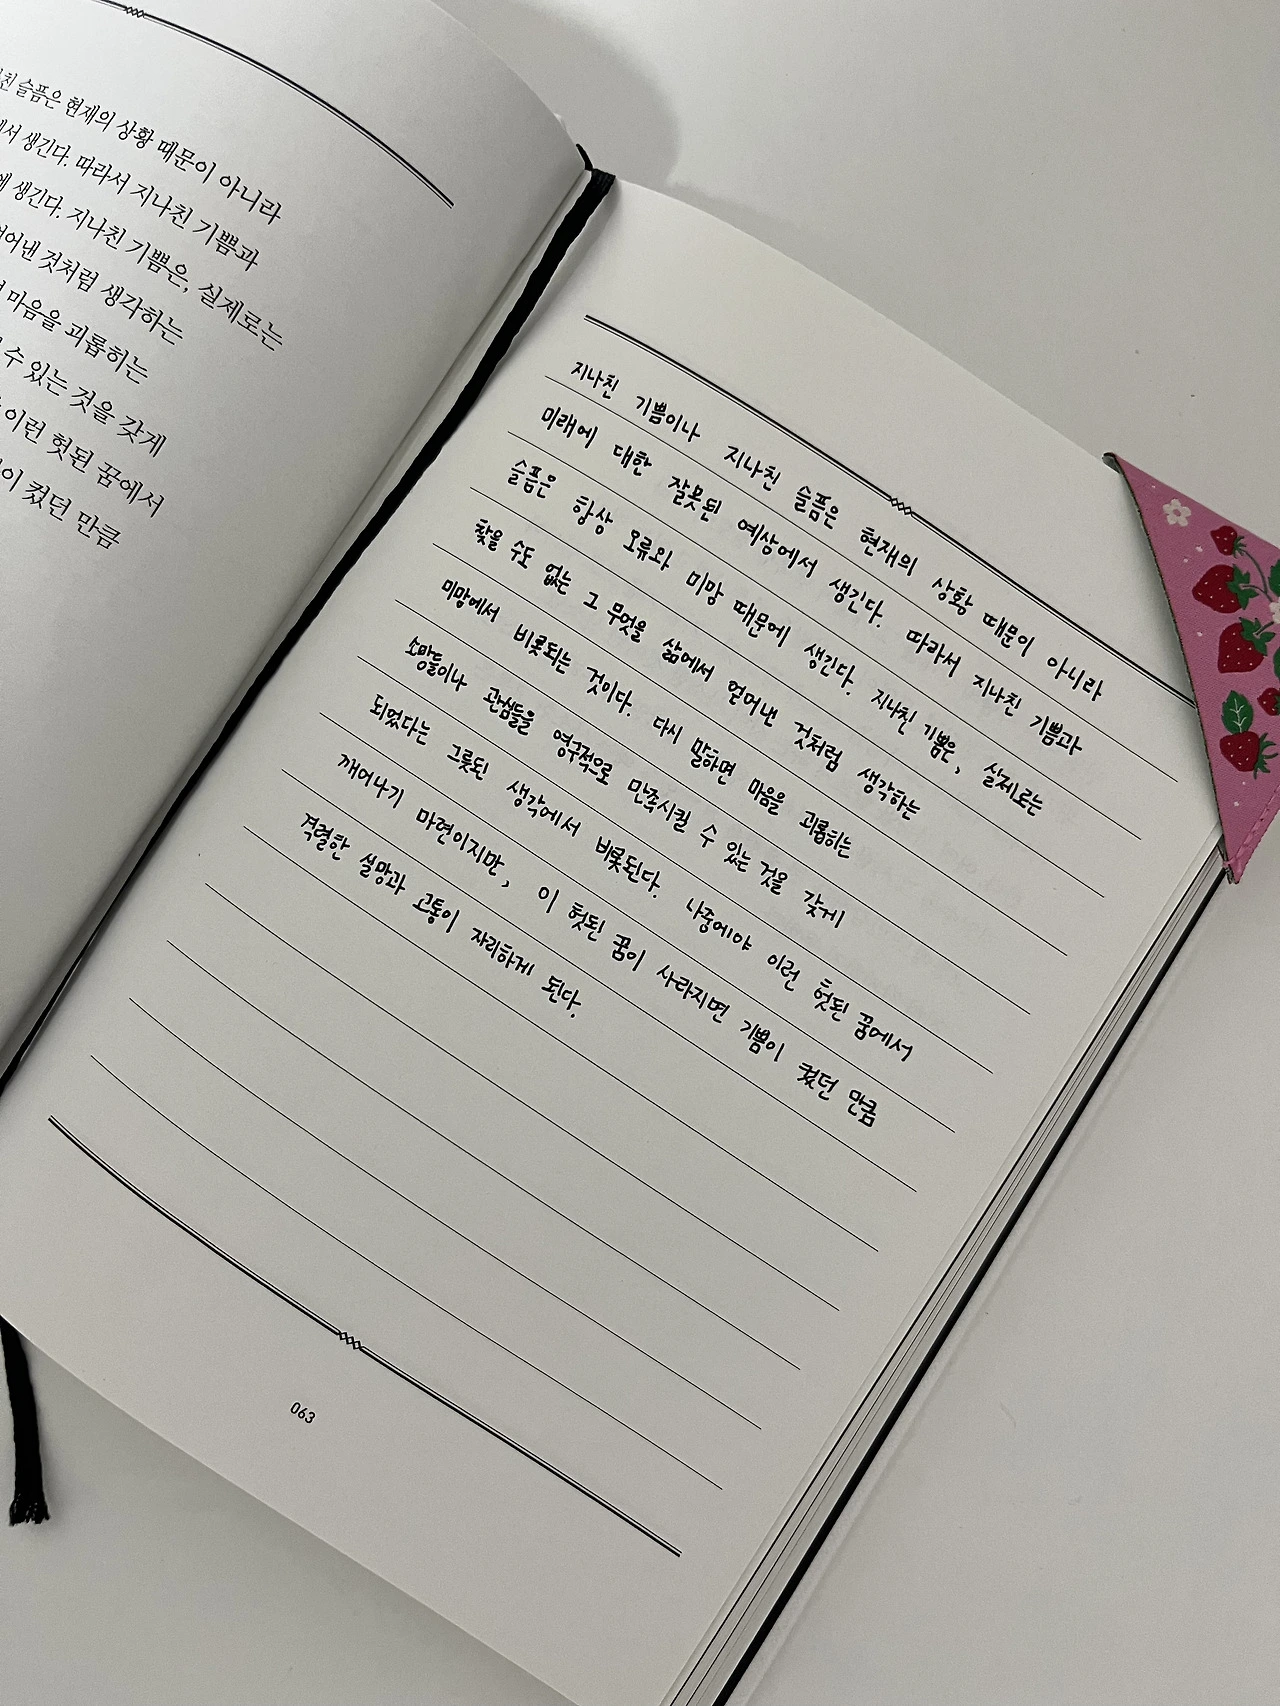 슬픔은 현재의 상황 때문이 아니라
생긴다. 따라서 지나친 기쁨과
생긴다. 지나친 기쁨은, 실제로는
것처럼 생각하는
마음을 괴롭히는
수 있는 것을 갖게
이런 헛된 꿈에서
컸던 만큼
지나친 기쁨이나 지나친 슬픔은 현재의 상황 때문이 아니라
미래에 대한 잘못된 예상에서 생긴다. 따라서 지나친 기쁨과
슬픔은 항상 오류와 미망 때문에 생긴다. 지나친 기쁨은, 실제로는
찾을 수도 없는 그 무엇을 삶에서 얻어낸 것처럼 생각하는
미망에서 비롯되는 것이다. 다시 말하면 마음을 괴롭히는
소망들이나 관심들을 영구적으로 만족시킬 수 있는 것을 갖게
되었다는 그릇된 생각에서 비롯된다. 나중에야 이런 헛된 꿈에서
깨어나기 마련이지만, 이 헛된 꿈이 사라지면 기쁨이 컸던 만큼
격렬한 실망과 고통이 자리하게 된다.
063